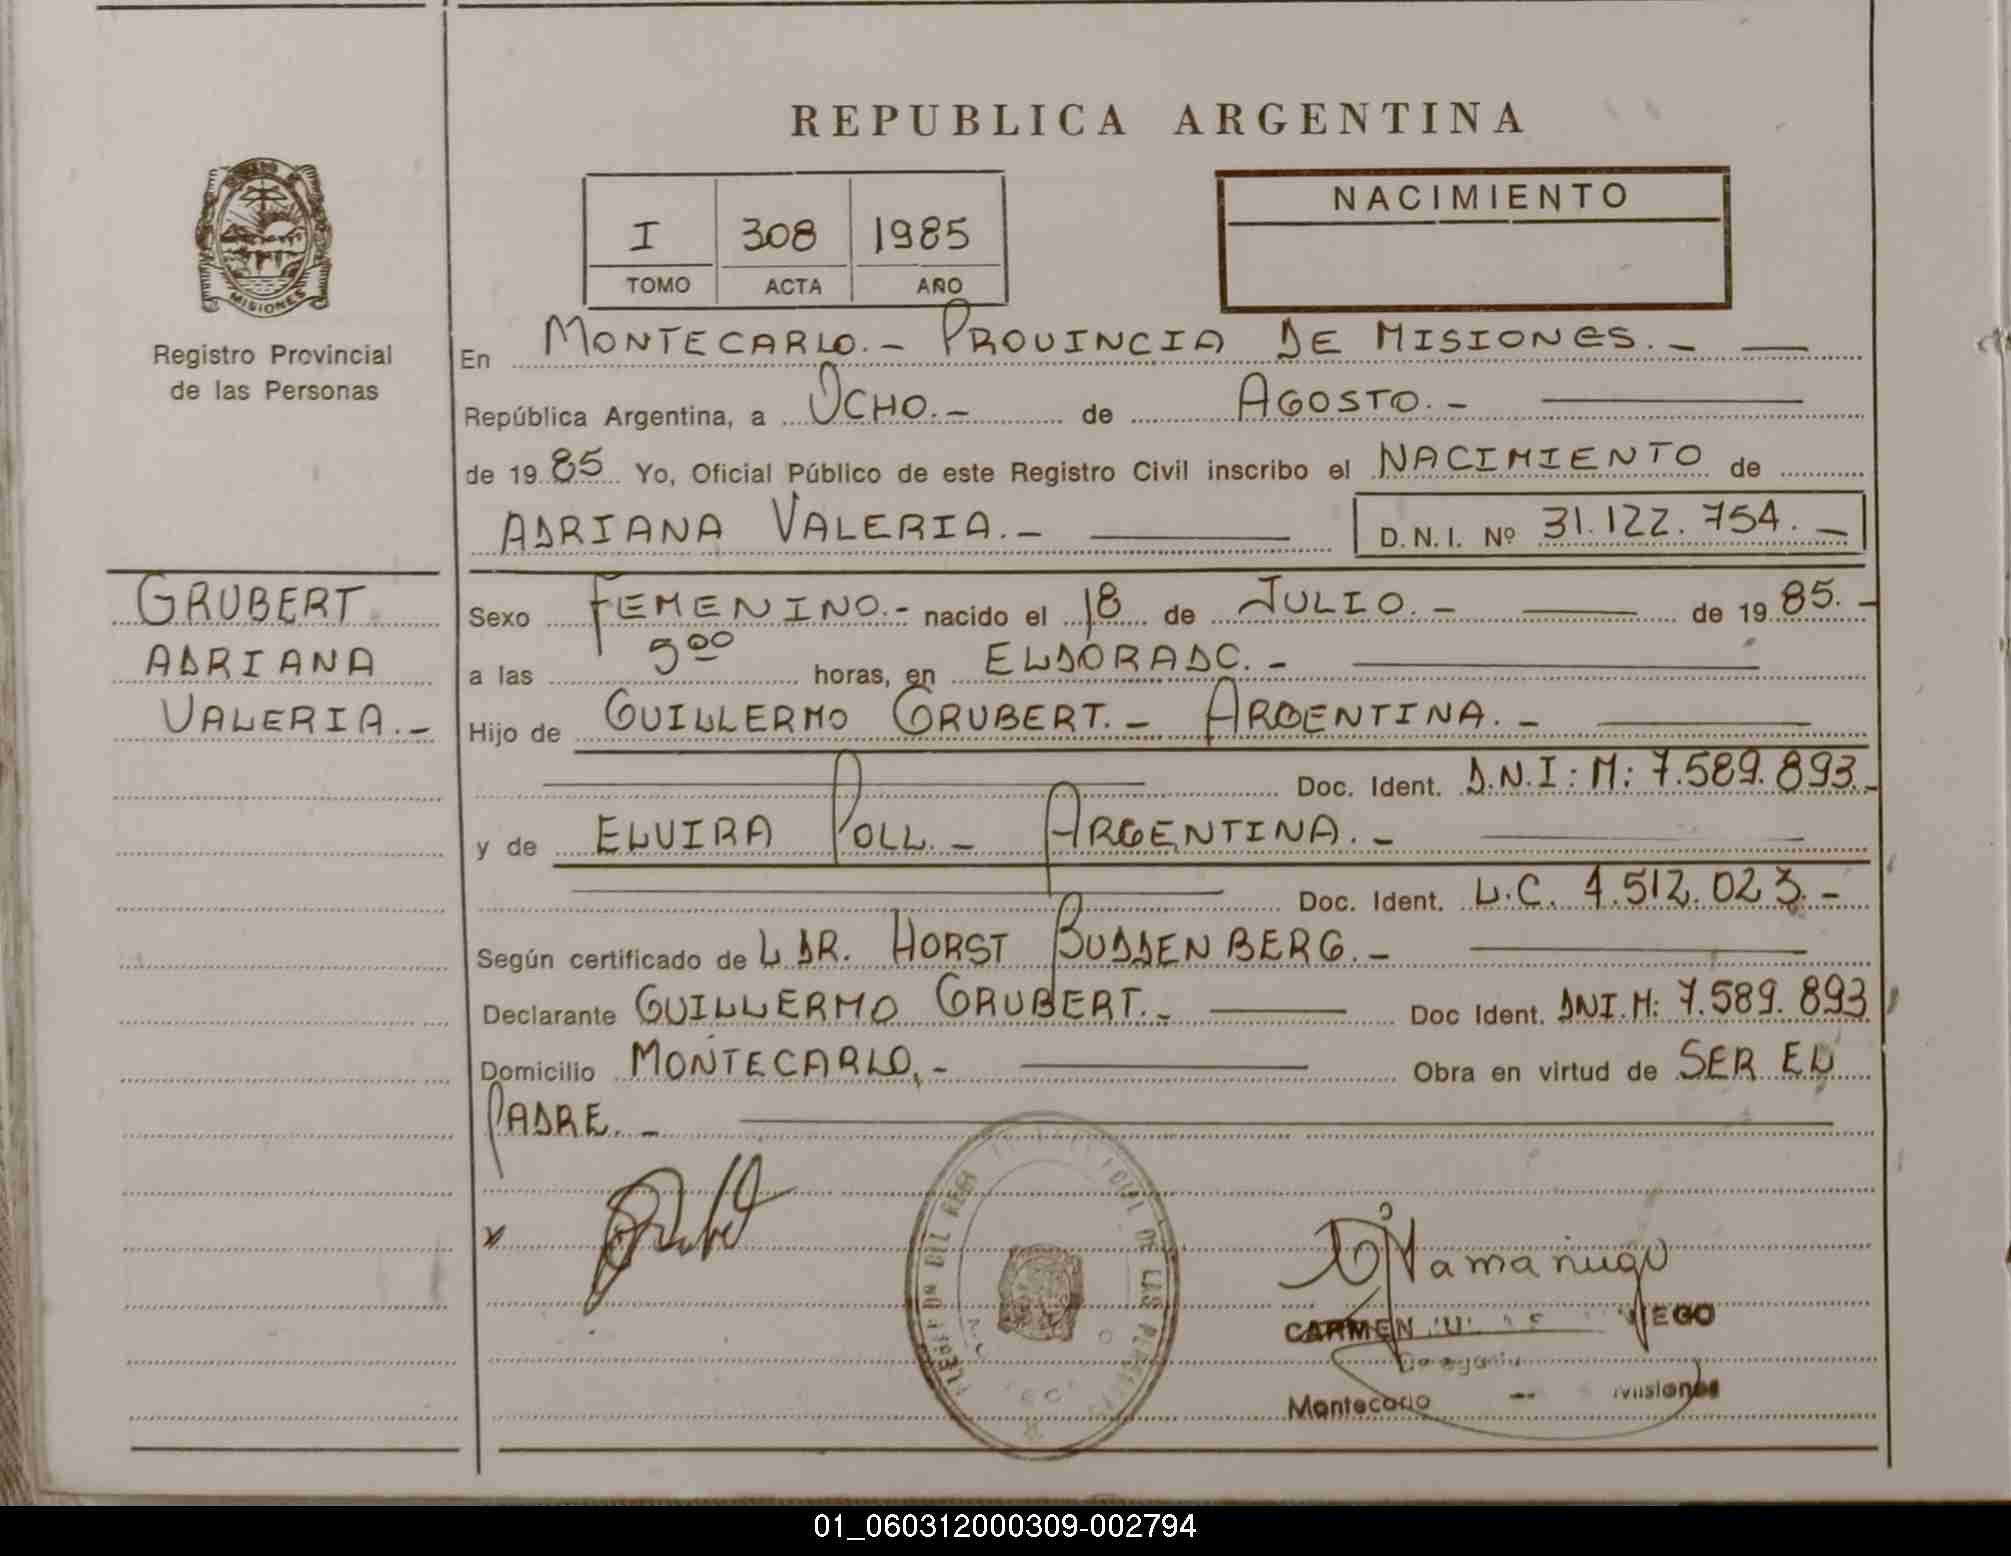 REPUBLICA ARGENTINA
NACIMIENTO
I 308 1985
TOMO ACTA AÑO
MISIONES
Registro Provincial
de las Personas
En MONTECARLO.- PROVINCIA DE MISIONES.-
República Argentina, a OCHO.- de AGOSTO.-
de 1985 Yo, Oficial Público de este Registro Civil inscribo el NACIMIENTO de
ADRIANA VALERIA.- D.N.I. Nº 31.122.754.-
GRUBERT
ADRIANA
VALERIA.-
Sexo FEMENINO.- nacido el 18 de JULIO.- de 1985.-
a las 5 00 horas, en ELDORADO.-
Hijo de GUILLERMO GRUBERT.- ARGENTINA.-
Doc. Ident. D.N.I: M: 7.589.893.-
y de ELVIRA POLL.- ARGENTINA.-
Doc. Ident. L.C. 4.512.023.-
Según certificado de L DR. HORST BUSSENBERG.-
Declarante GUILLERMO GRUBERT.- Doc Ident. DNI.M: 7.589.893
Domicilio MONTECARLO,- Obra en virtud de SER EL
PADRE.-
CARMEN
Montecarlo Misiones
01_060312000309-002794